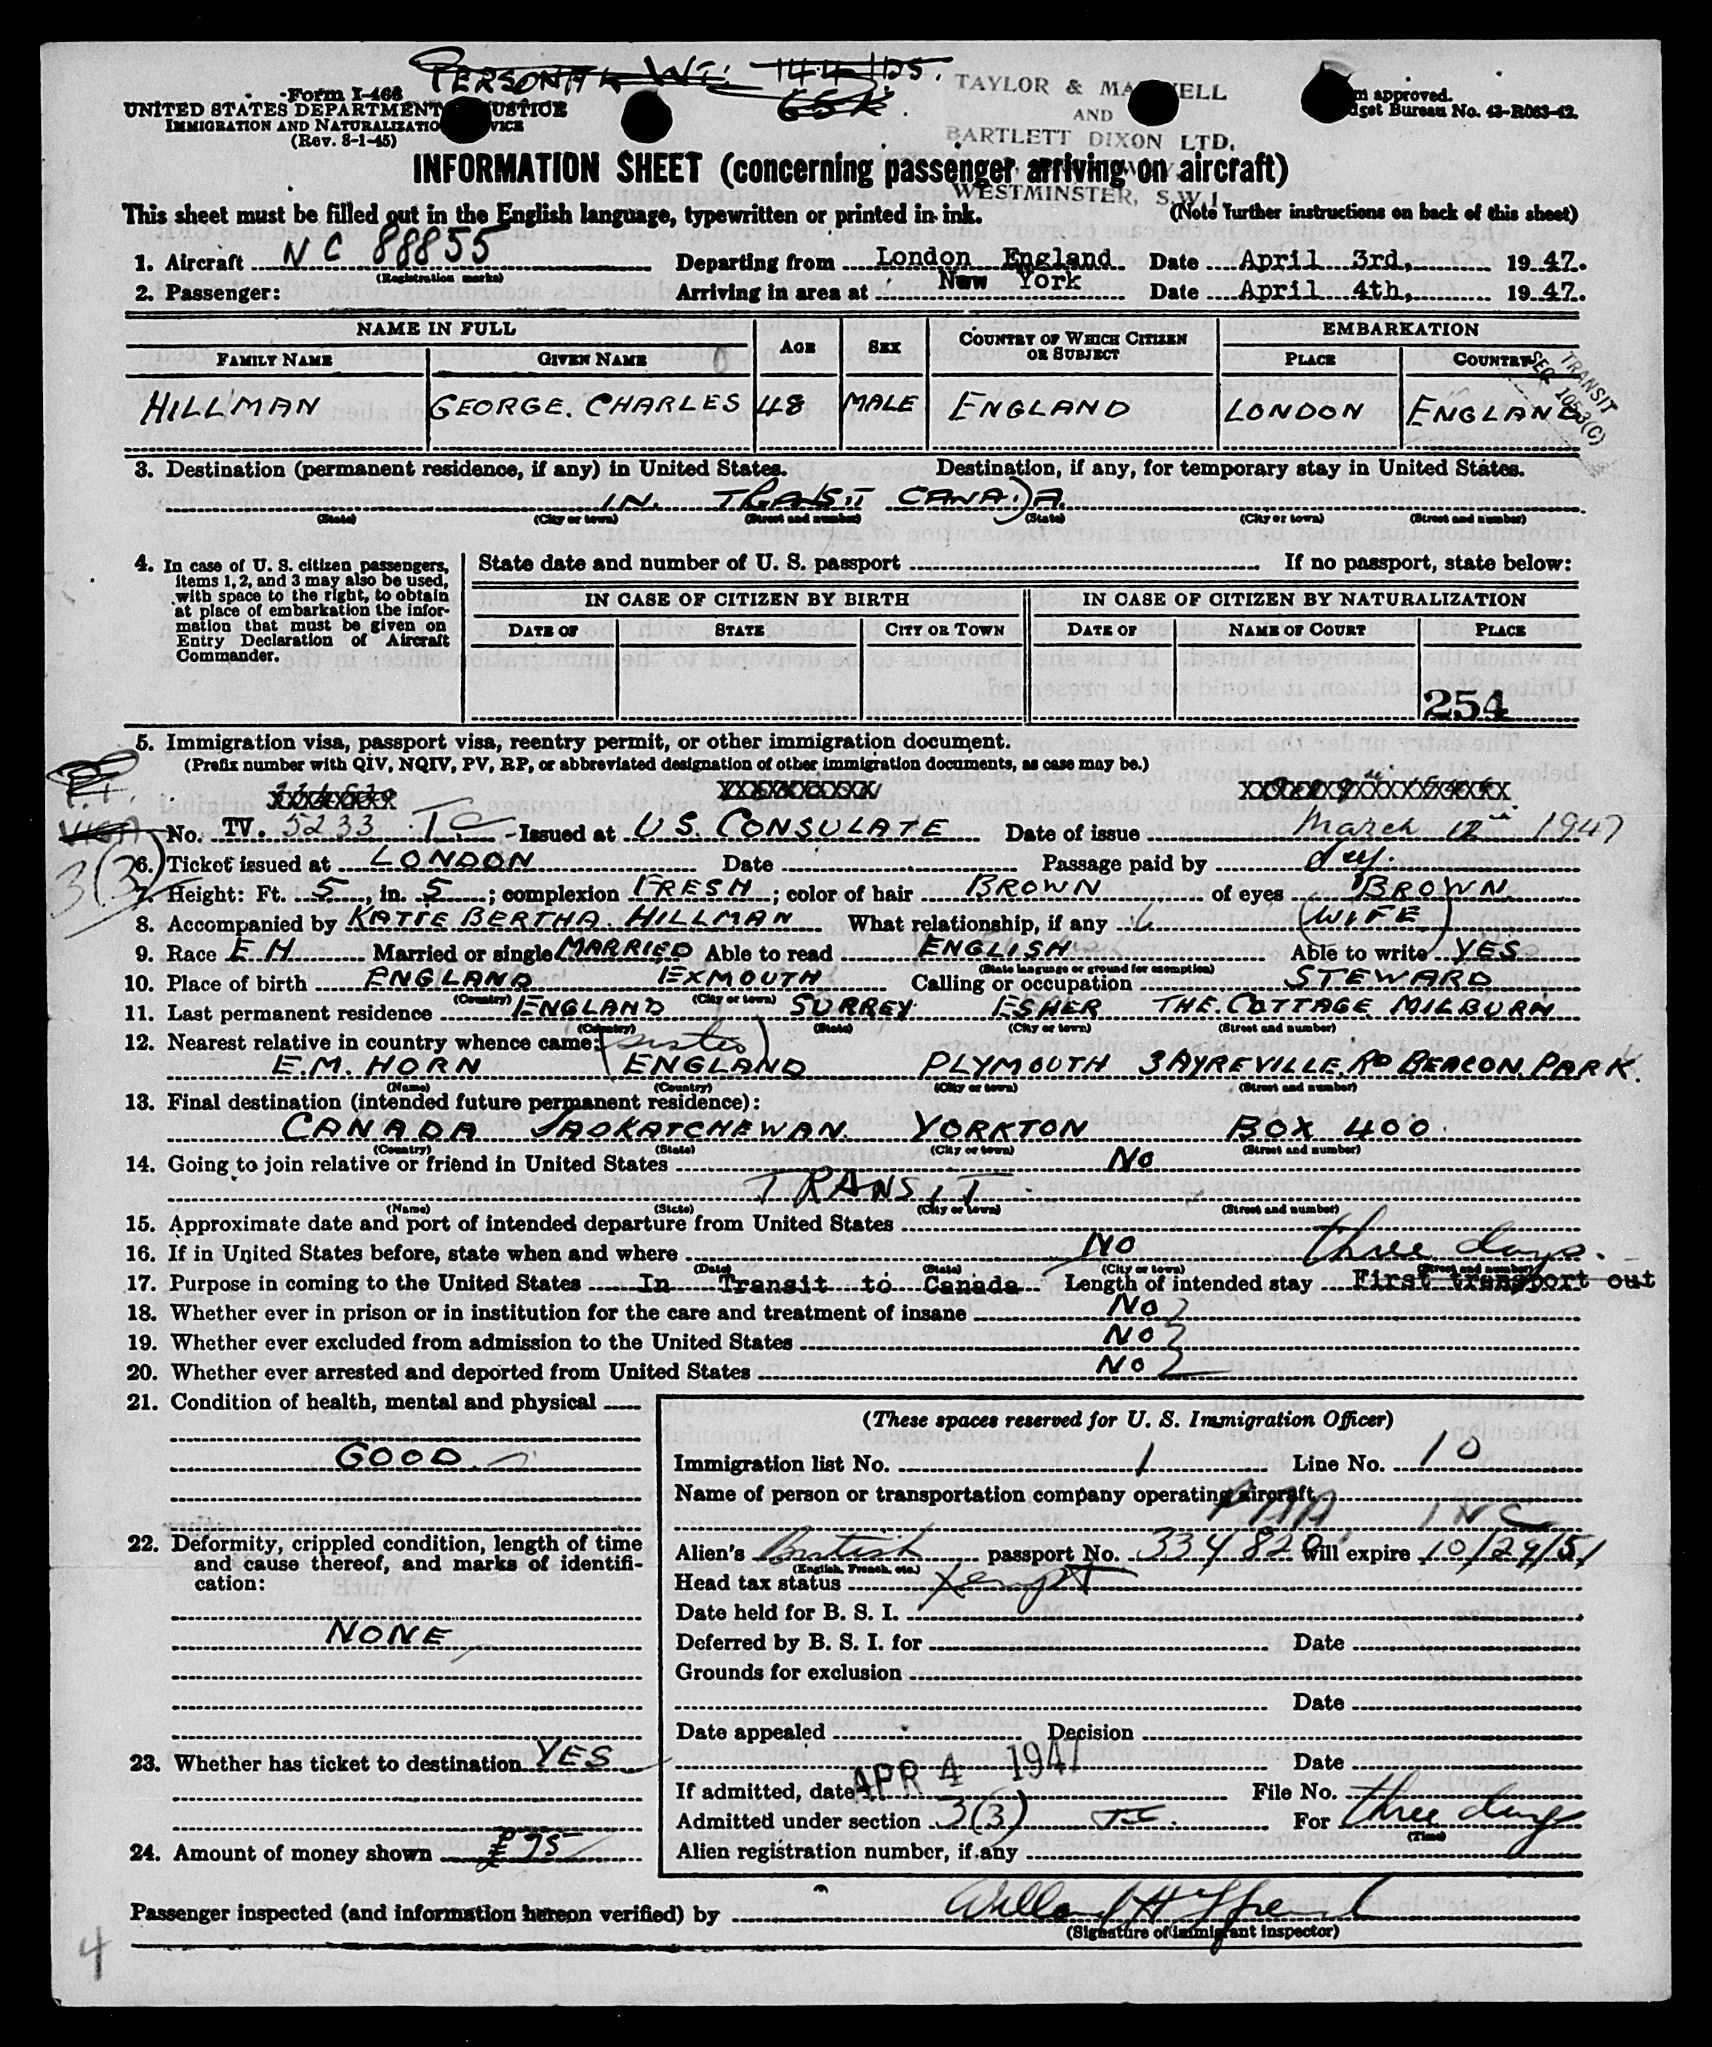 PERSONAL WT. 144 lbs.
65K.
TAYLOR & MA WELL
AND
BARTLETT DIXON LTD.
WESTMINSTER, S.W.1.
Form I-466
UNITED STATES DEPARTMENT JUSTICE
IMMIGRATION AND NATURALIZATIO VICE
(Rev. 8-1-45)
m approved.
dget Bureau No. 43-R063-42.
INFORMATION SHEET (concerning passenger arriving on aircraft)
This sheet must be filled out in the English language, typewritten or printed in ink.
(Note further instructions on back of this sheet)
1. Aircraft NC 88855 Departing from London England Date April 3rd, 1947.
(Registration marks)
2. Passenger: Arriving in area at New York Date April 4th, 1947.
NAME IN FULL AGE SEX COUNTRY OF WHICH CITIZEN OR SUBJECT EMBARKATION
FAMILY NAME GIVEN NAME PLACE COUNTRY
TRANSIT
SEC. 105.3(C)
HILLMAN GEORGE. CHARLES 48 MALE ENGLAND LONDON ENGLAND
3. Destination (permanent residence, if any) in United States. Destination, if any, for temporary stay in United States.
IN. TRANSIT CANADA.
(State) (City or town) (Street and number) (State) (City or town) (Street and number)
4. In case of U. S. citizen passengers, items 1, 2, and 3 may also be used, with space to the right, to obtain at place of embarkation the information that must be given on Entry Declaration of Aircraft Commander.
State date and number of U. S. passport If no passport, state below:
IN CASE OF CITIZEN BY BIRTH IN CASE OF CITIZEN BY NATURALIZATION
DATE OF STATE CITY OR TOWN DATE OF NAME OF COURT PLACE
254
5. Immigration visa, passport visa, reentry permit, or other immigration document.
(Prefix number with QIV, NQIV, PV, RP, or abbreviated designation of other immigration documents, as case may be.)
No. TV. 5233 TC Issued at U S. CONSULATE Date of issue March 12th 1947
3(3)
6. Ticket issued at LONDON Date Passage paid by
7. Height: Ft. 5, in. 5; complexion FRESH; color of hair BROWN of eyes BROWN
8. Accompanied by KATIE BERTHA HILLMAN What relationship, if any (WIFE)
9. Race EH Married or single MARRIED Able to read ENGLISH Able to write YES
(State language or ground for exemption)
10. Place of birth ENGLAND EXMOUTH Calling or occupation STEWARD
(Country) (City or town)
11. Last permanent residence ENGLAND SURREY ESHER THE. COTTAGE MILBURN
(Country) (State) (City or town) (Street and number)
12. Nearest relative in country whence came: (sister)
E.M. HORN ENGLAND PLYMOUTH 3 AYREVILLE. RD BEACON. PARK.
(Name) (Country) (City or town) (Street and number)
13. Final destination (intended future permanent residence):
CANADA SASKATCHEWAN. YORKTON BOX 400.
(Country) (State) (City or town) (Street and number)
14. Going to join relative or friend in United States No
TRANSIT.
(Name) (State) (City or town) (Street and number)
15. Approximate date and port of intended departure from United States
16. If in United States before, state when and where NO three days.
(Date) (State) (City or town) (Street and number)
17. Purpose in coming to the United States In Transit to Canada Length of intended stay First transport out
18. Whether ever in prison or in institution for the care and treatment of insane No
19. Whether ever excluded from admission to the United States No
20. Whether ever arrested and deported from United States No
21. Condition of health, mental and physical
GOOD.
22. Deformity, crippled condition, length of time and cause thereof, and marks of identification:
NONE
23. Whether has ticket to destination YES
24. Amount of money shown £75
(These spaces reserved for U. S. Immigration Officer)
Immigration list No. 1 Line No. 10
Name of person or transportation company operating aircraft
PAA, INC
Alien's British passport No. 334820 will expire 10/29/51
(English, French, etc.)
Head tax status Xempt
Date held for B. S. I.
Deferred by B. S. I. for Date
Grounds for exclusion
Date
Date appealed Decision
Date
If admitted, date APR 4 1947 File No.
Admitted under section 3(3) TC. For three days
(Time)
Alien registration number, if any
Passenger inspected (and information hereon verified) by
(Signature of immigrant inspector)
4